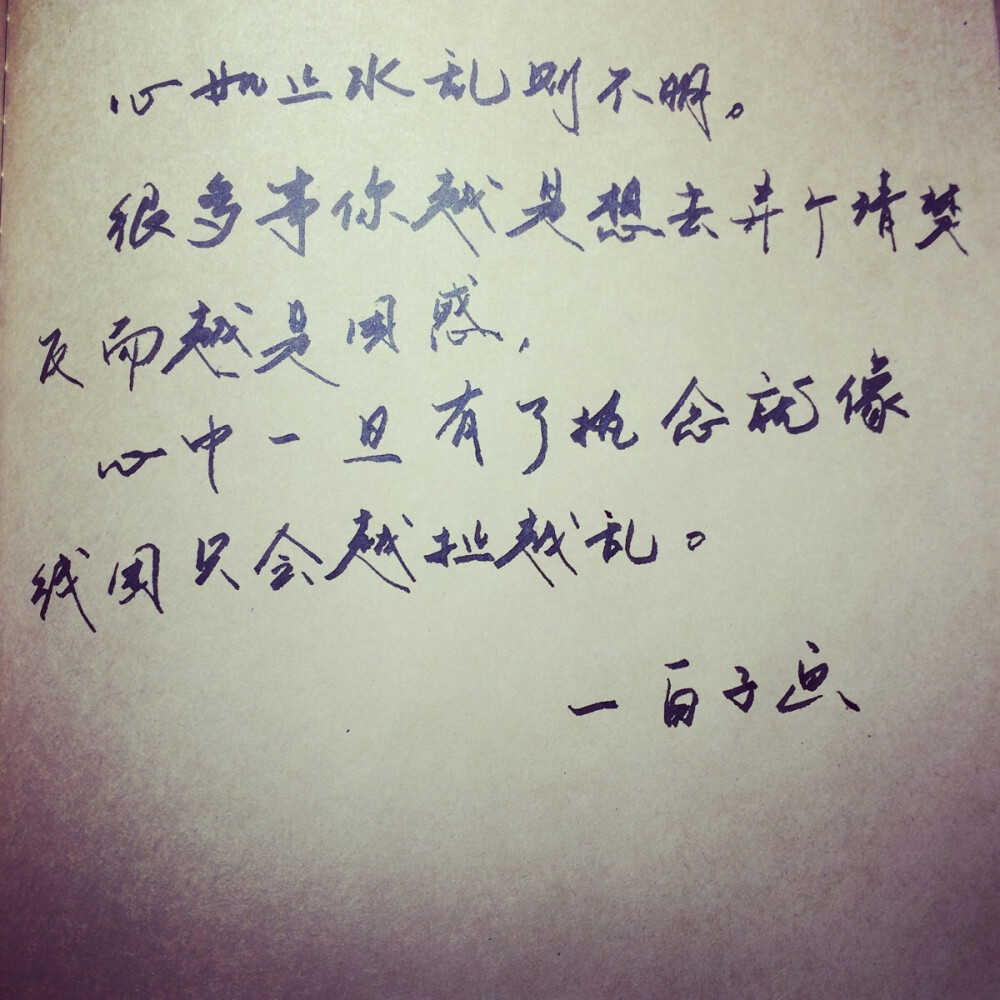 心如止水乱则不明。
很多事你越是想去弄个清楚
反而越是困惑,
心中一旦有了执念就像
线团只会越扯越乱。
一白子画